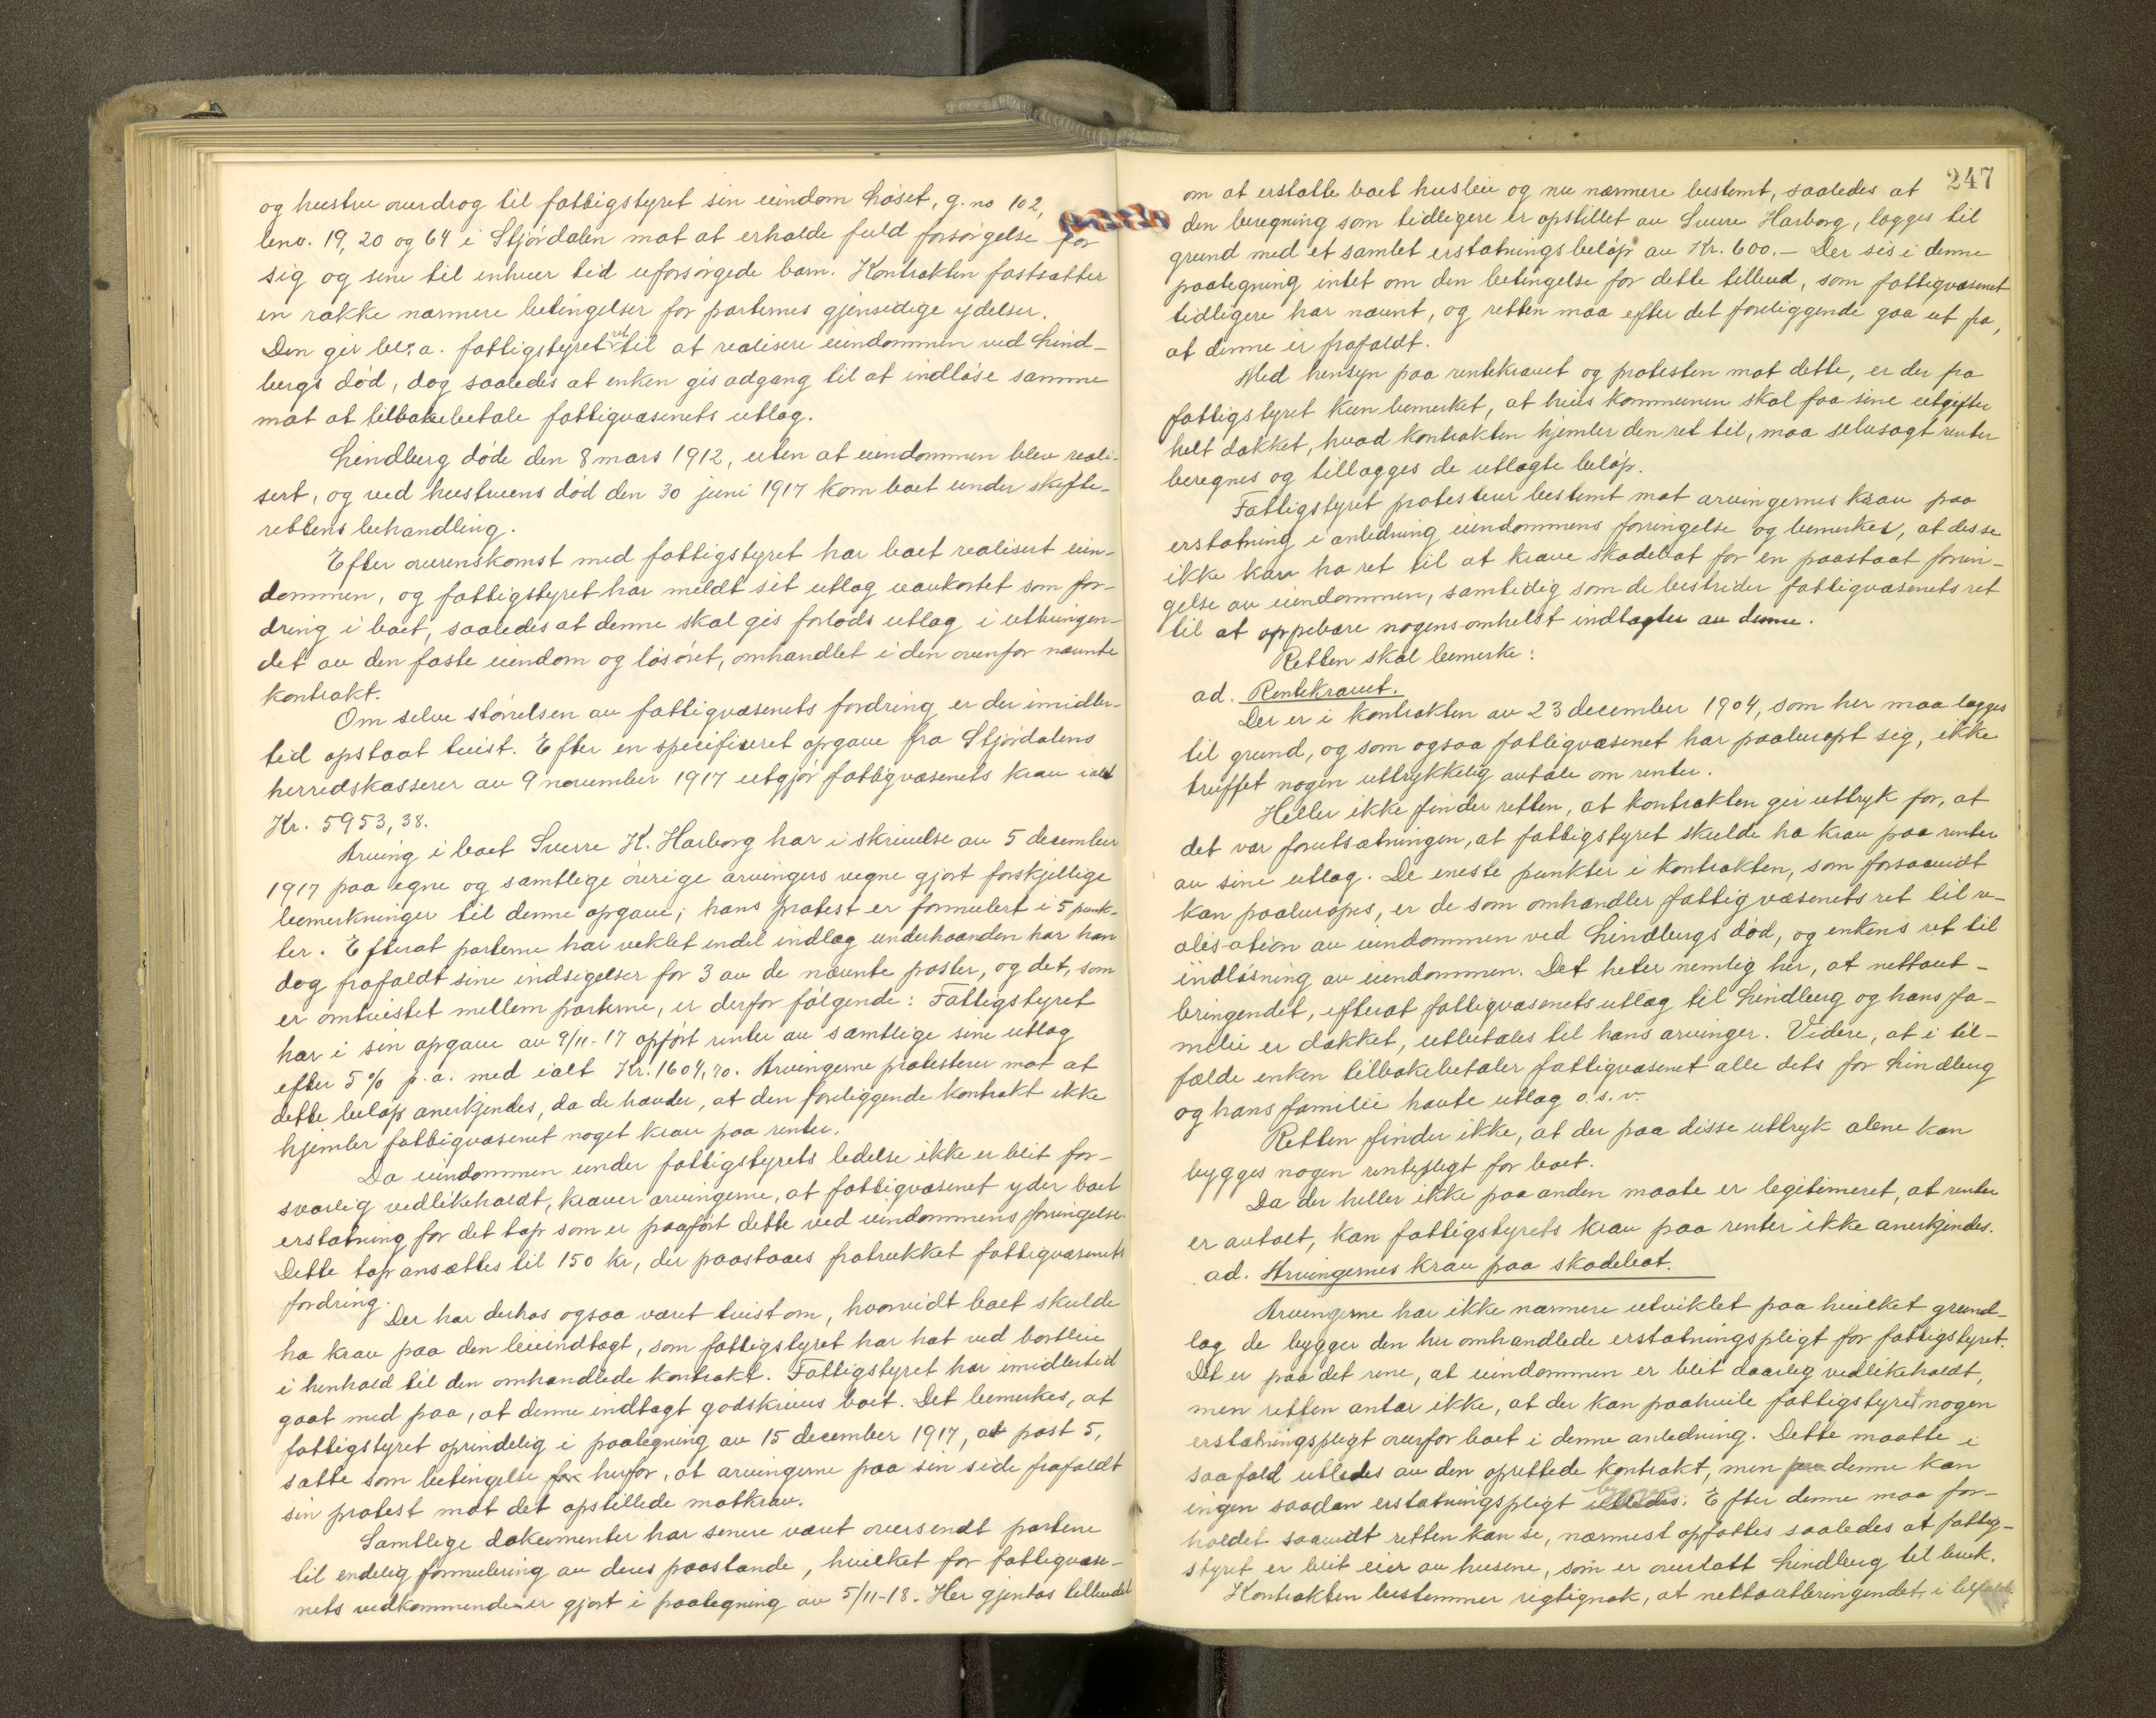 og hustru overdrog til fattigstyret sin eiendom Høset, g. no 102,
bno. 19, 20 og 64 i Stjørdalen mot at erholde fuld forsørgelse for
sig og sine til enhver tid uforsørgede barn. Kontrakten fastsætter
en række nærmere betingelser for parternes gjensidige ydelser.
Den gir bl. a. fattigstyret ret til at realisere eiendommen ved Lind-
bergs død, dog saaledes at enken gis adgang til at indløse samme
mot at tilbakebetale fattigvæsenets utlæg.
Lindberg døde den 8 mars 1912, uten at eiendommen blev reali-
sert, og ved hustruens død den 30 juni 1917 kom boet under skifte-
rettens behandling.
Efter overenskomst med fattigstyret har boet realisert eien-
dommen, og fattigstyret har meldt sit utlæg uavkortet som for-
dring i boet, saaledes at denne skal gis forlods utlæg i utbringen-
det av den faste eiendom og løsøret, omhandlet i den ovenfor nævnte
kontrakt.
Om selve størrelsen av fattigvæsenets fordring er der imidler-
tid opstaat tvist. Efter en specificeret opgave fra Stjørdalens
herredskasserer av 9 november 1917 utgjør fattigvæsenets krav ialt
Kr. 5953,38.
Arving i boet Sverre K. Harborg har i skrivelse av 5 december
1917 paa egne og samtlige øvrige arvingers vegne gjort forskjellige
bemerkninger til denne opgave; hans protest er formulert i 5 punk-
ter. Efterat parterne har vekslet endel indlæg underhaanden har han
dog frafaldt sine indsigelser for 3 av de nævnte poster, og det, som
er omtvistet mellem parterne, er derfor følgende: Fattigstyret
har i sin opgave av 9/11-17 opført renter av samtlige sine utlæg
efter 5% p.a. med ialt Kr. 1604,70. Arvingerne protesterer mot at
dette beløp anerkjendes, da de hævder, at den foreliggende kontrakt ikke
hjemler fattigvæsenet noget krav paa renter.
Da eiendommen under fattigstyrets ledelse ikke er blit for-
svarlig vedlikeholdt, kræver arvingerne, at fattigvæsenet yder boet
erstatning for det tap som er paaført dette ved eiendommens forringelse.
Dette tap ansættes til 150 kr, der paastaaes fratrukket fattigvæsenets
fordring.
Der har derhos ogsaa været tvist om, hvorvidt boet skulde
ha krav paa den leieindtægt, som fattigstyret har hat ved bortleie
i henhold til den omhandlede kontrakt. Fattigstyret har imidlertid
gaat med paa, at denne indtægt godskrives boet. Det bemerkes, at
fattigstyret oprindelig i paategning av 15 december 1917, ad post 5,
satte som betingelse for herfor, at arvingerne paa sin side frafaldt
sin protest mot det opstillede motkrav.
Samtlige dokumenter har senere været oversendt partene
til endelig formulering av deres paastande, hvilket for fattigvæse-
nets vedkommende er gjort i paategning av 5/11-18. Her gjentas tilbudet
247
om at erstatte boet husleie og nu nærmere bestemt, saaledes at
den beregning som tidligere er opstillet av Sverre Harborg, lægges til
grund med et samlet erstatningsbeløp av Kr. 600.- Der sis i denne
paategning intet om den betingelse for dette tilbud, som fattigvæsenet
tidligere har nævnt, og retten maa efter det foreliggende gaa ut fra,
at denne er frafaldt.
Med hensyn paa rentekravet og protesten mot dette, er der fra
fattigstyret kun bemerket, at hvis kommunen skal faa sine utgifter
helt dækket, hvad kontrakten hjemler den ret til, maa selvsagt renter
beregnes og tillægges de utlagte beløp.
Fattigstyret protesterer bestemt mot arvingernes krav paa
erstatning i anledning eiendommens forringelse og bemerker, at disse
ikke kan ha ret til at kræve skadebot for en paastaat forrin-
gelse av eiendommen, samtidig som de bestrider fattigvæsenets ret
til at oppebære nogensomhelst indtægter av denne.
Retten skal bemerke:
ad. Rentekravet.
Der er i kontrakten av 23 december 1904, som her maa lægges
til grund, og som ogsaa fattigvæsenet har paaberopt sig, ikke
truffet nogen uttrykkelig avtale om renter.
Heller ikke finder retten, at kontrakten gir uttryk for, at
det var forutsætningen, at fattigstyret skulde ha krav paa renter
av sine utlæg. De eneste punkter i kontrakten, som forsaavidt
kan paaberopes, er de som omhandler fattigvæsenets ret til re-
alisation av eiendommen ved Lindbergs død, og enkens ret til
indløsning av eiendommen. Det heter nemlig her, at nettout-
bringendet, efterat fattigvæsenets utlæg til Lindberg og hans fa-
milie er dækket, utbetales til hans arvinger. Videre, at i til-
fælde enken tilbakebetaler fattigvæsenet alle dets for Lindberg
og hans familie havte utlæg o.s.v.
Retten finder ikke, at der paa disse uttryk alene kan
bygges nogen rentepligt for boet.
Da der heller ikke paa anden maate er legitimeret, at renter
er avtalt, kan fattigstyrets krav paa renter ikke anerkjendes.
ad. Arvingernes krav paa skadebot.
Arvingerne har ikke nærmere utviklet paa hvilket grund-
lag de bygger den her omhandlede erstatningspligt for fattigstyret.
Det er paa det rene, at eiendommen er blit daarlig vedlikeholdt,
men retten antar ikke, at der kan paahvile fattigstyret nogen
erstatningspligt overfor boet i denne anledning. Dette maatte i
saafald utledes av den oprettede kontrakt, men paa denne kan
ingen saadan erstatningspligt bygges. Efter denne maa for-
holdet saavidt retten kan se, nærmest opfattes saaledes at fattig-
styret er blit eier av husene, som er overlatt Lindberg til bruk.
Kontrakten bestemmer rigtignok, at nettoutbringendet, i tilfælde